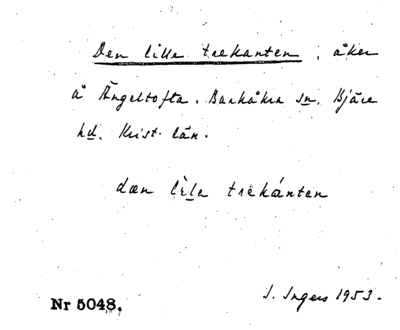 Den lille trekanten, åker
å Ängeltofta. Barkåkra sn. Bjäre
hd. Krist. län.
dæn lìle trekánten
J. Ingers 1953.
Nr 5048.